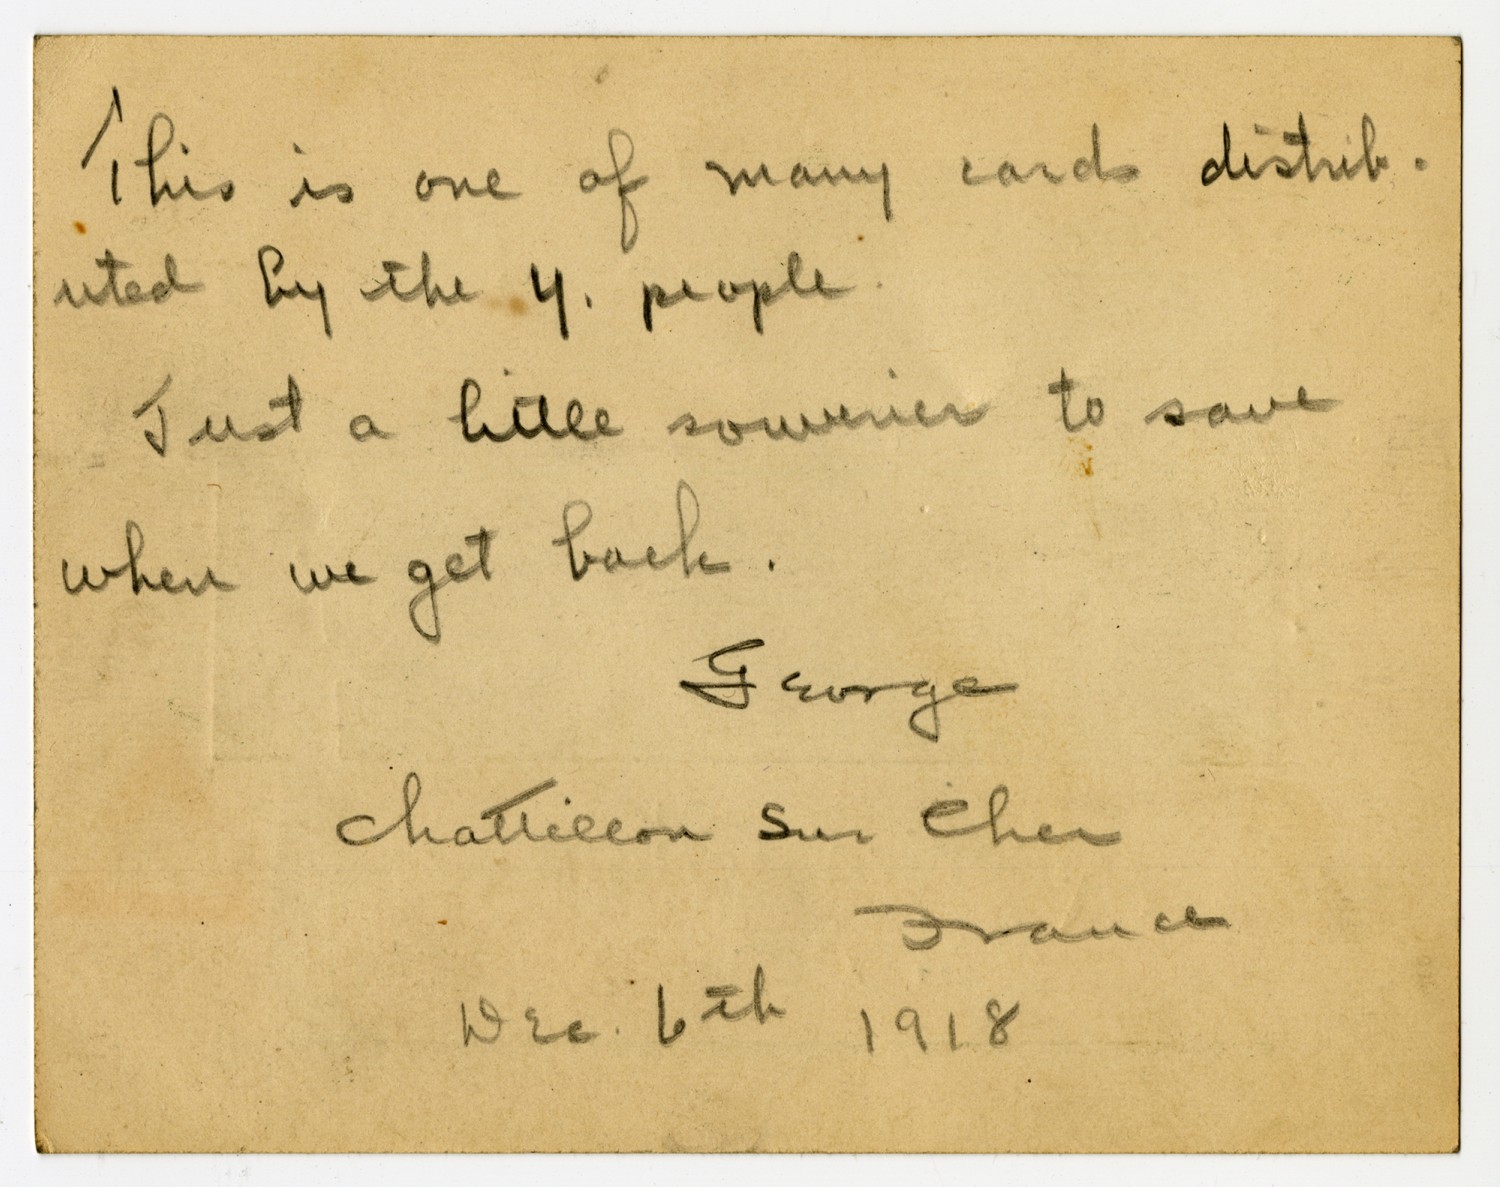 This is one of many cards distrib-
uted by the Y. people.
Just a little souvenier to save
when we get back.
George
Chattillon Sur Cher
France
Dec. 6th 1918